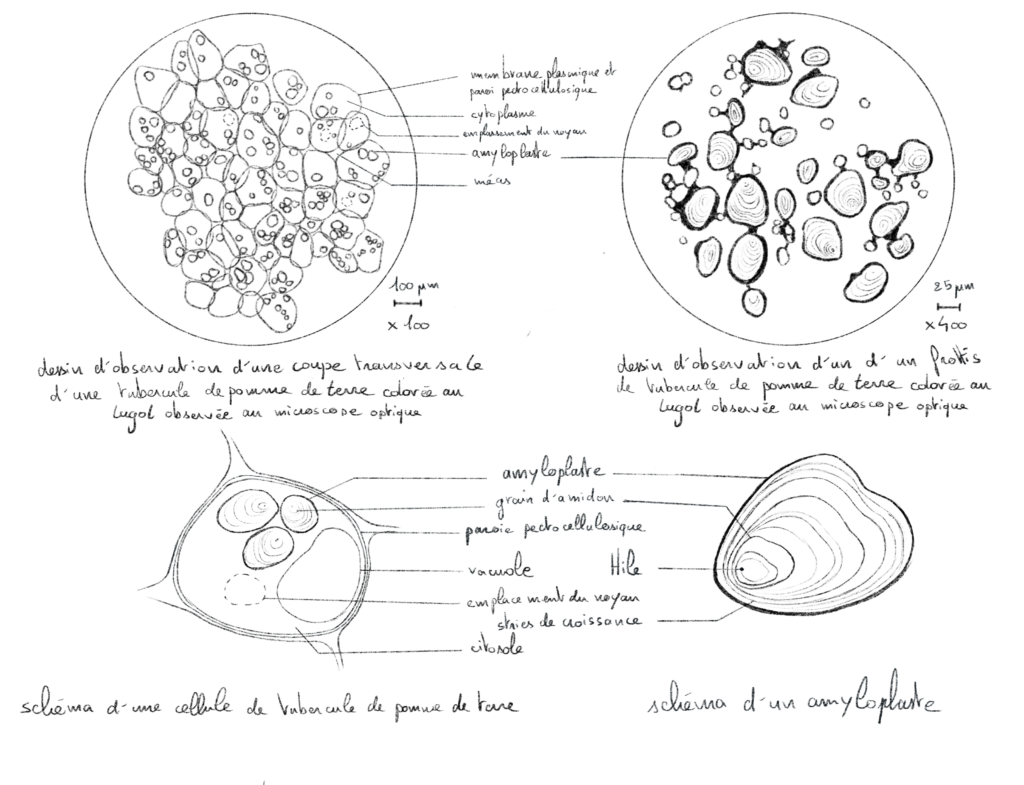 membrane plasmique et
paroi pectocellulosique
cytoplasme
emplassement du noyau
amyloplaste
méas
100 µm
x 100
25 µm
x400
dessin d'observation d'une coupe transversale
d'une tubercule de pomme de terre colorée au
Lugol observée au microscope optique
dessin d'observation d'un d'un frottis
de tubercule de pomme de terre colorée au
Lugol observée au microscope optique
amyloplaste
grain d'amidon
paroie pectocellulosique
vacuole
Hile
emplacement du noyau
stries de croissance
citosole
schéma d'une cellule de tubercule de pomme de terre
schéma d'un amyloplaste